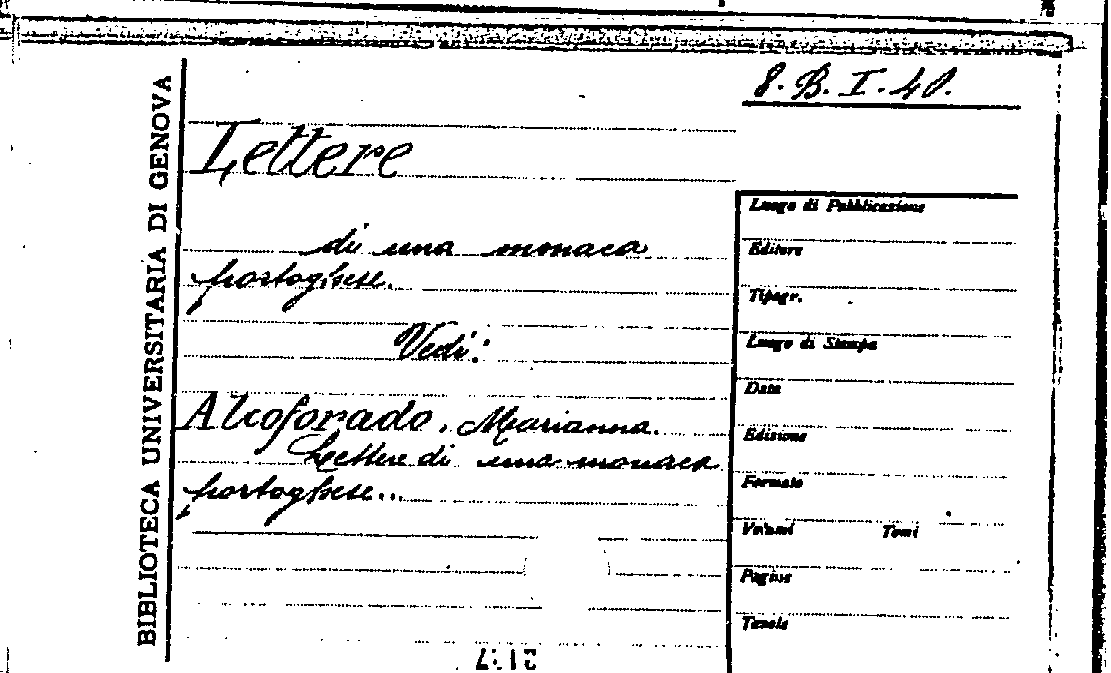 8. B. I. 40.
BIBLIOTECA UNIVERSITARIA DI GENOVA
Lettere
di una monaca
portoghese.
Vedi:
Alcoforado, Marianna.
Lettere di una monaca
portoghese...
Luogo di Pubblicazione
Editore
Tipogr.
Luogo di Stampa
Data
Edizione
Formato
Volumi Tomi
Pagine
Tavole